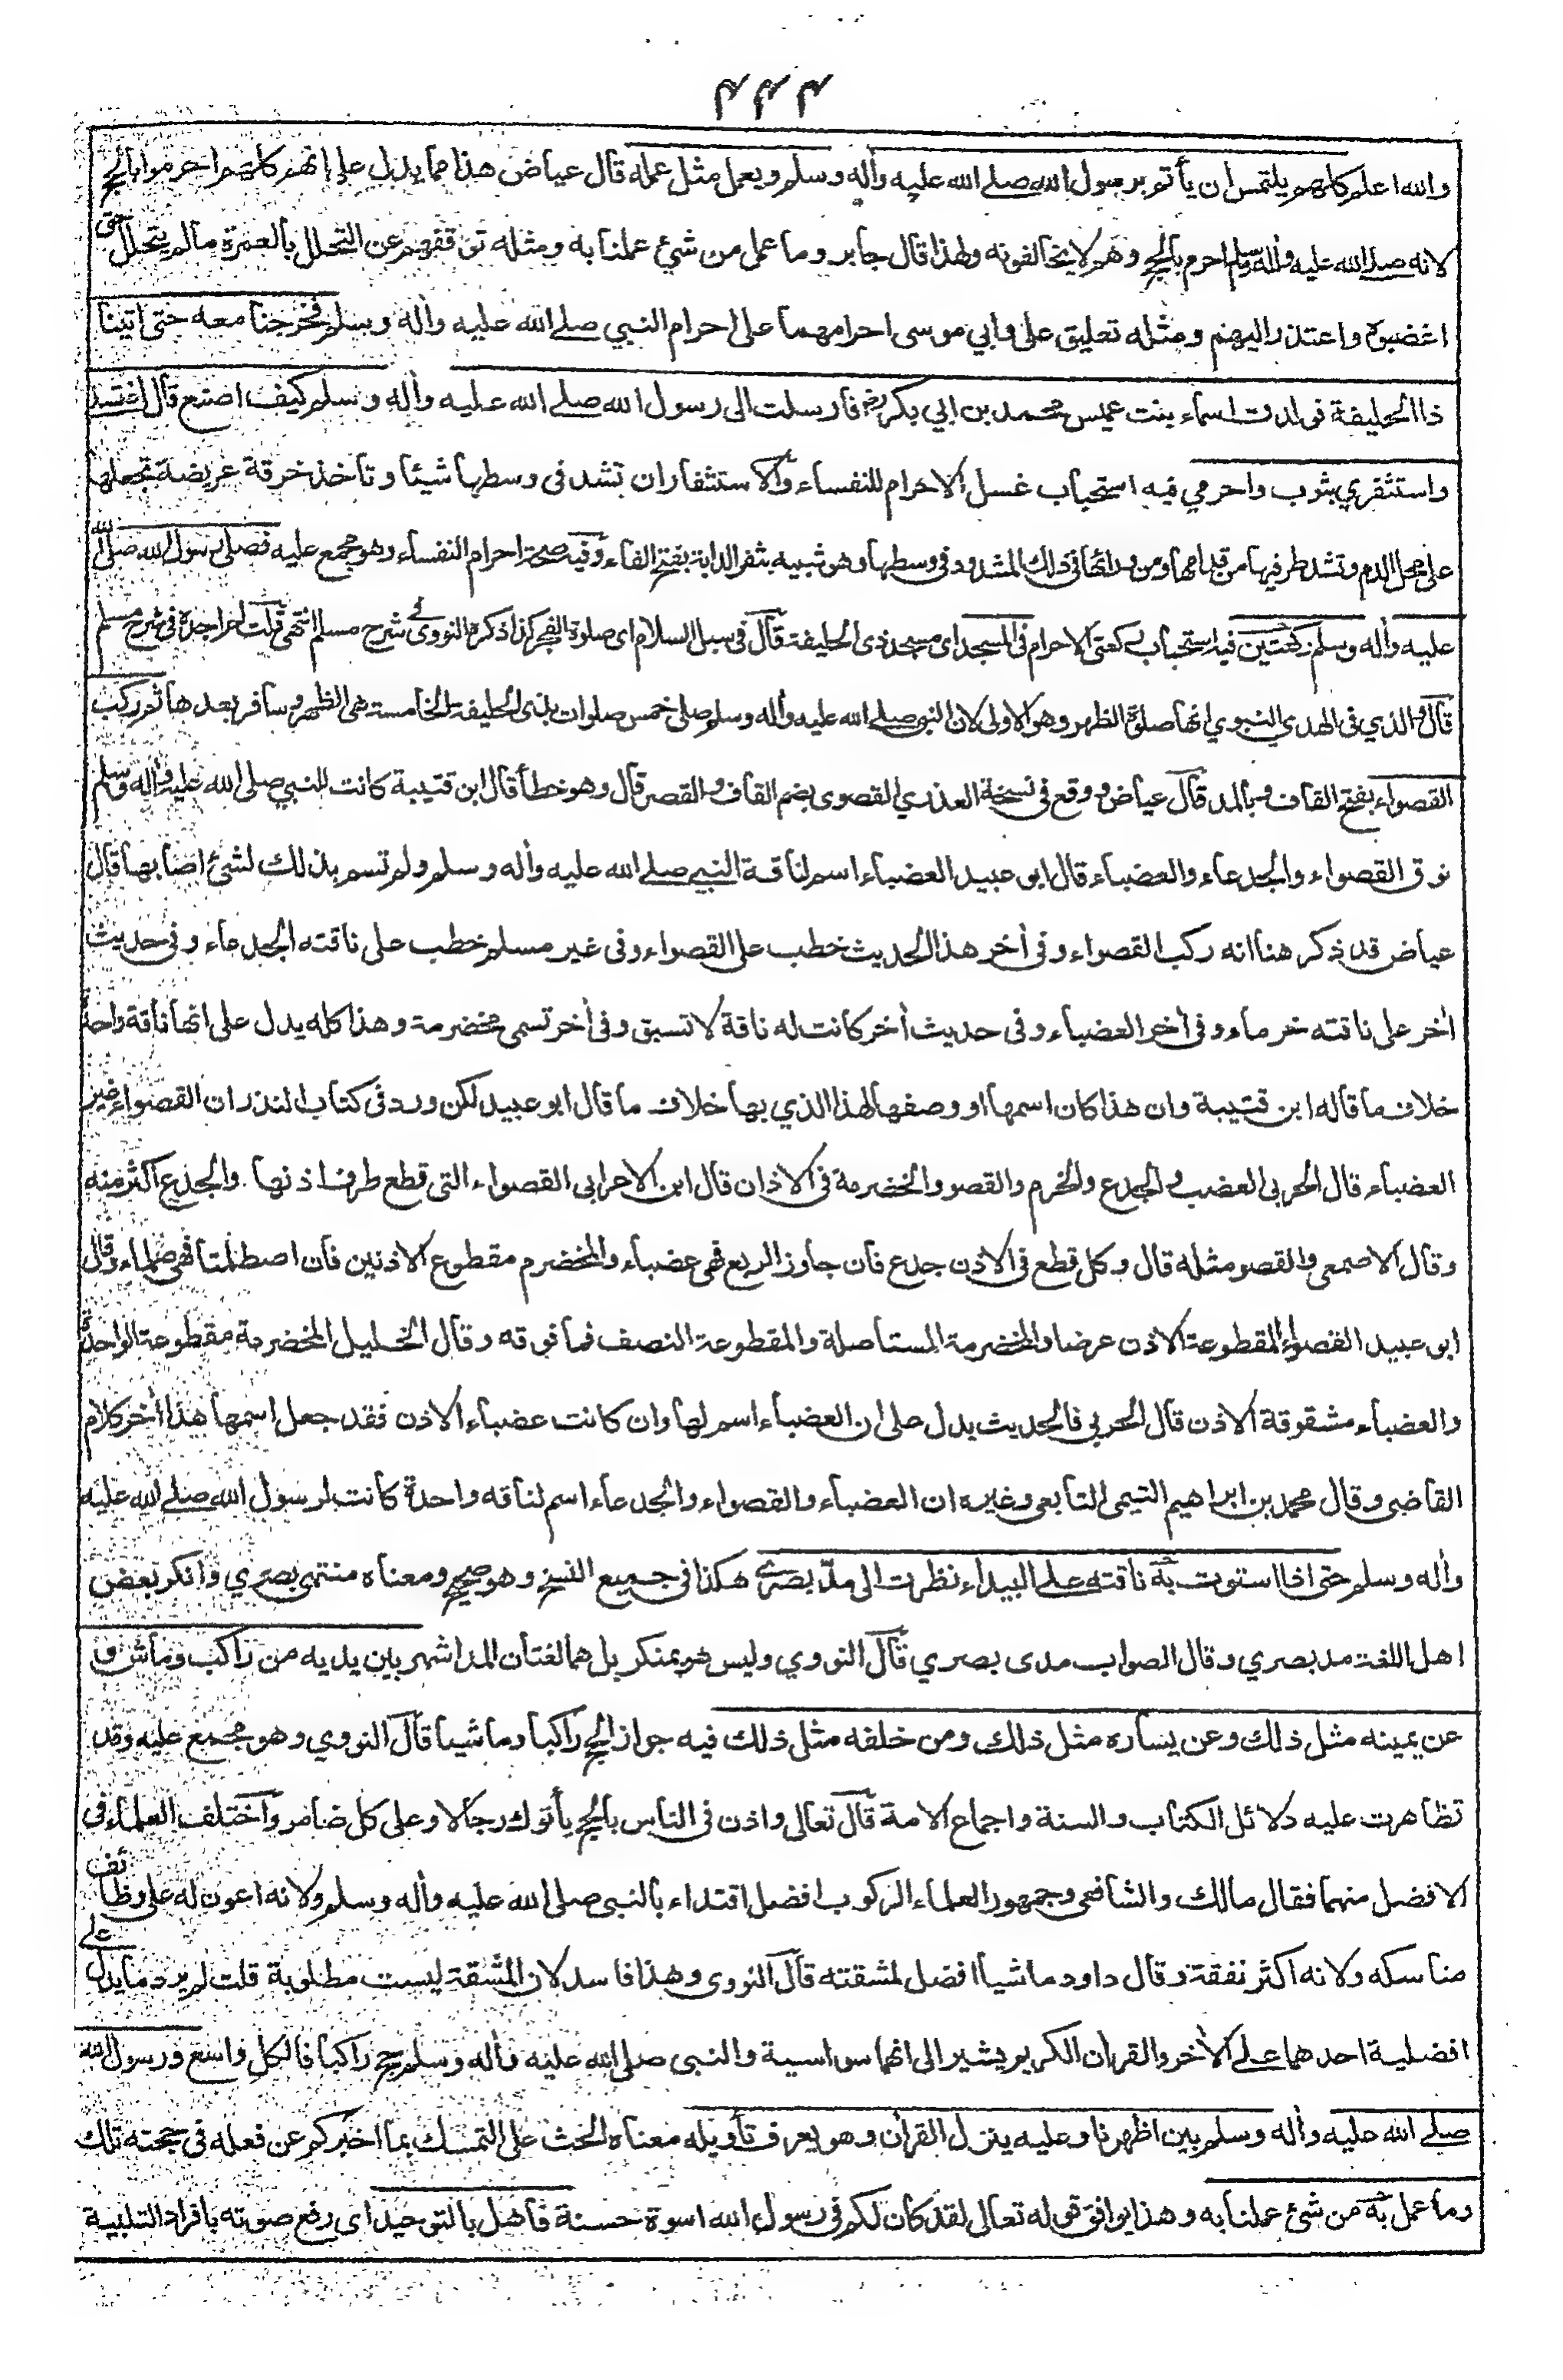 ٣٣٣
والله اعلم كلهم يلتمس ان يأتم برسول الله صلے الله عليه وأله وسلم ويعمل مثل عمله قال عياض هذا مما يدل على انهم كلهم احرموا بالحج
لانه صلے الله عليه وأله وسلم احرم بالحج وهم لا يخالفونه ولهذا قال جابر وما عمل من شئ عملنا به ومثله توقفهم عن التحلل بالعمرة مالم يتحلل حتى
اغضبوه واعتذر اليهم ومثله تعليق على وابي موسى احرامهما على احرام النبي صلے الله عليه وأله وسلم فخرجنا معه حتى اتينا
ذا الحليفة فولدت اسماء بنت عميس محمد بن ابي بكر رضـ فارسلت الى رسول الله صلے الله عليه وأله وسلم كيف اصنع قال اغتسلي
واستثفري بثوب واحرمي فيه استحباب غسل الاحرام للنفساء والاستثفار ان تشد في وسطها شيئا وتاخذ خرقة عريضة تجعلها
على محل الدم وتشد طرفيها من قدامها ومن ورائها في ذلك المشدود في وسطها وهو شبيه بثفر الدابة بفتح الفاء وفيه صحة احرام النفساء وهو مجمع عليه فصلى رسول الله صلى الله
عليه وأله وسلم ركعتين فيه استحباب ركعتى الاحرام في المسجد اى مسجد ذى الحليفة قال في سبل السلام اى صلوة الفجر كذا ذكره النووى في شرح مسلم انتهى قلت لم اجده في شرح مسلم
قال والذي في الهدي النبوي انها صلوة الظهر وهو الاولى لان النبي صلے الله عليه وأله وسلم صلى خمس صلوات بذى الحليفة الخامسة هي الظهر وسافر بعدها ثم ركب
القصواء بفتح القاف وبالمد قال عياض ووقع في نسخة العذري القصوى بضم القاف والقصر قال وهو خطأ قال ابن قتيبة كانت للنبي صلى الله عليه وأله وسلم
نوق القصواء والجدعاء والعضباء قال ابو عبيد العضباء اسم لناقة النبي صلے الله عليه وأله وسلم ولم تسم بذلك لشئ اصابها قال
عياض قد ذكر هنا انه ركب القصواء وفي أخر هذا الحديث خطب على القصواء وفي غير مسلم خطب على ناقته الجدعاء وفي حديث
أخر على ناقته خرماء وفي أخر العضباء وفي حديث أخر كانت له ناقة لا تسبق وفي أخر تسمى مخضرمة وهذا كله يدل على انها ناقة واحدة
خلاف ما قاله ابن قتيبة وان هذا كان اسمها او وصفها لهذا الذي بها خلاف ما قال ابو عبيد لكن ورد في كتاب النذر ان القصواء غير
العضباء قال الحربى العضب والجدع والخرم والقصو والخضرمة في الاذان قال ابن الاعرابى القصواء التى قطع طرف اذنها. والجدع اكثر منه
وقال الاصمعي والقصو مثله قال وكل قطع في الاذن جدع فان جاوز الربع فهى عضباء والمخضرم مقطوع الاذنين فان اصطلمتا فهى صلماء وقال
ابو عبيد القصواء المقطوعة الاذن عرضا والمخضرمة المستاصلة والمقطوعة النصف فما فوقه وقال الخليل المخضرمة مقطوعة الواحدة
والعضباء مشقوقة الاذن قال الحربي فالحديث يدل على ان العضباء اسم لها وان كانت عضباء الاذن فقد جعل اسمها هذا أخر كلام
القاضى وقال محمد بن ابراهيم التيمى التابعى وغيره ان العضباء والقصواء والجدعاء اسم لناقه واحدة كانت لرسول الله صلے الله عليه
وأله وسلم حتى اذا استوت به ناقته على البيداء نظرت الى مد بصرى هكذا في جميع النسخ وهو صحيح ومعناه منتهى بصري وانكر بعض
اهل اللغة مد بصري وقال الصواب مدى بصري قال النووي وليس هو بمنكر بل هما لغتان المد اشهر بين يديه من راكب وماش و
عن يمينه مثل ذلك وعن يساره مثل ذلك ومن خلفه مثل ذلك فيه جواز الحج راكبا وماشيا قال النووي وهو مجمع عليه وقد
تظاهرت عليه دلائل الكتاب والسنة واجماع الامة قال تعالى واذن في الناس بالحج يأتوك رجالا وعلى كل ضامر واختلف العلماء في
الافضل منهما فقال مالك والشافعى وجمهور العلماء الركوب افضل اقتداء بالنبي صلى الله عليه وأله وسلم ولانه اعون له على وظائف
مناسكه ولانه اكثر نفقة وقال داود ماشيا افضل لمشقته قال النووى وهذا فاسد لان المشقة ليست مطلوبة قلت لم يرد ما يدل على
افضلية احدهما على الأخر والقرأن الكريم يشير الى انهما سواسية والنبى صلى الله عليه وأله وسلم حج راكبا فالكل واسع ورسول الله
صلے الله عليه وأله وسلم بين اظهرنا وعليه ينزل القرأن وهو يعرف تأويله معناه الحث على التمسك بما اخبركم عن فعله في حجته تلك
وما عمل به من شئ عملنا به وهذا يوافق قوله تعالى لقد كان لكم في رسول الله اسوة حسنة فاهل بالتوحيد اى رفع صوته بافراد التلبية